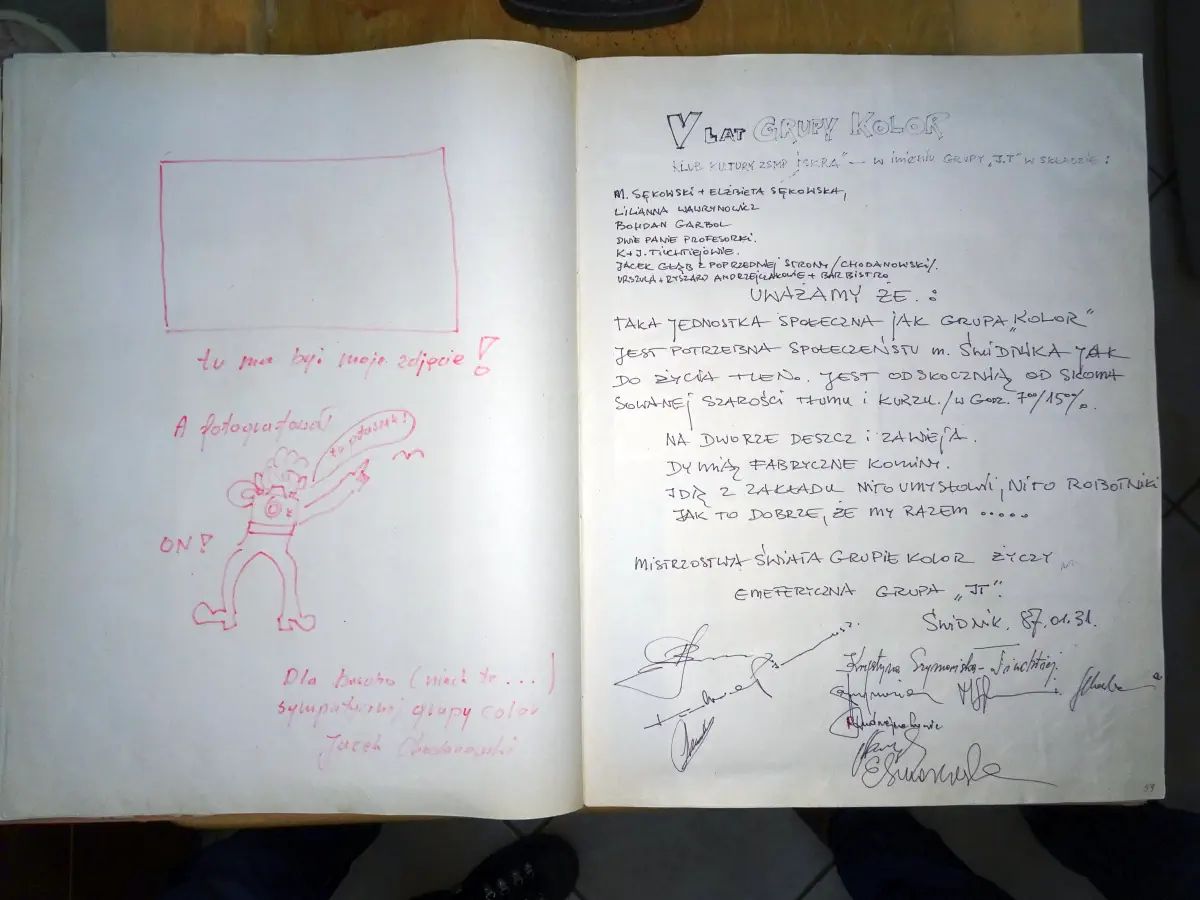 tu ma być moje zdjęcie!
A fotografował
tu ptaszek!
ON!
Dla bardzo (niech to ...)
sympatycznej grupy color
Jacek Chodanowski
V LAT GRUPY KOLOR
KLUB KULTURY ZSMP "ISKRA" — W IMIENIU GRUPY "J.T" W SKŁADZIE:
M. SĘKOWSKI + ELŻBIETA SĘKOWSKA,
LILIANNA WAWRYNOWICZ
BOHDAN GARBOL
DWIE PANIE PROFESORKI.
K+J.
JACEK GŁĄB Z POPRZEDNIEJ STRONY /CHODANOWSKI/.
URSZULA + RYSZARD + BAR BISTRO
UWAŻAMY ŻE.:
TAKA JEDNOSTKA SPOŁECZNA JAK GRUPA "KOLOR"
JEST POTRZEBNA SPOŁECZEŃSTU m. ŚWIDNIKA JAK
DO ŻYCIA TLEN. JEST ODSKOCZNIĄ OD SKOMA
SOWANEJ SZAROŚCI TŁUMU I KURZU./W GODZ. 7⁰⁰/15⁰⁰/.
NA DWORZE DESZCZ I ZAWIEJA.
DYMIĄ FABRYCZNE KOMINY.
IDĄ Z ZAKŁADU NITO UMYSŁOWI, NITO ROBOTNIKI
JAK TO DOBRZE, ŻE MY RAZEM .....
MISTRZOSTWA ŚWIATA GRUPIE KOLOR ŻYCZY
EMEFERYCZNA GRUPA "JT".
ŚWIDNIK. 87.01.31.
Krystyna
59